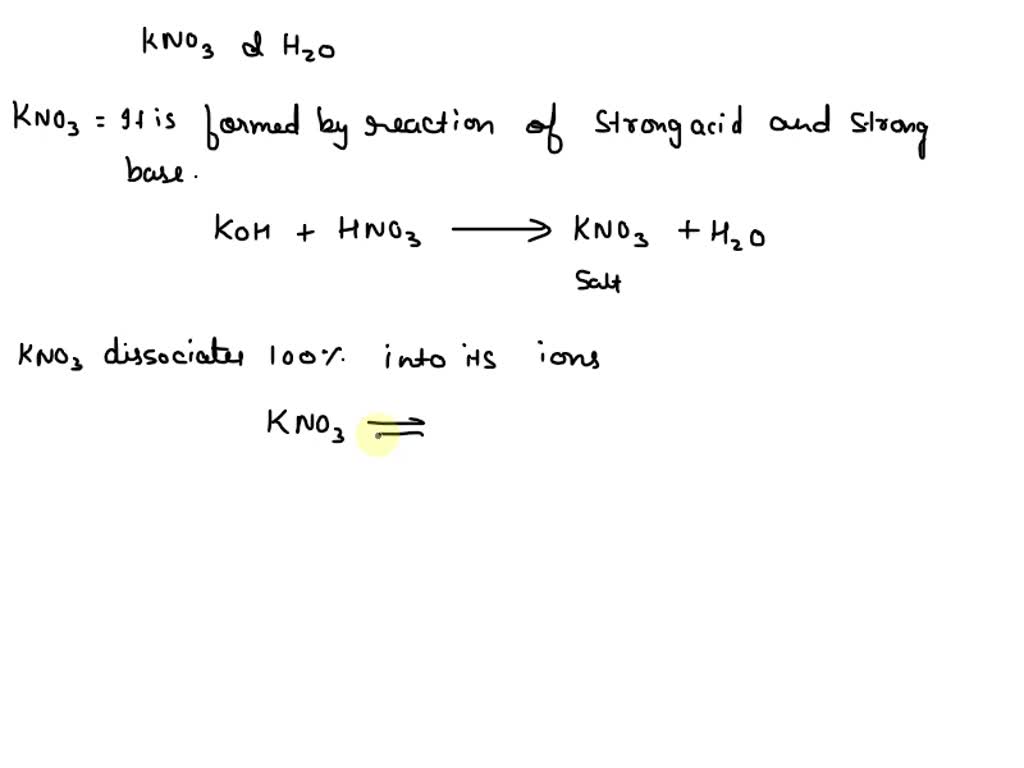 KNO₃ & H₂O
KNO₃ = It is formed by reaction of Strong acid and Strong
base.
KOH + HNO₃ ⟶ KNO₃ + H₂O
Salt
KNO₃ dissociates 100% into its ions
KNO₃ ⇌